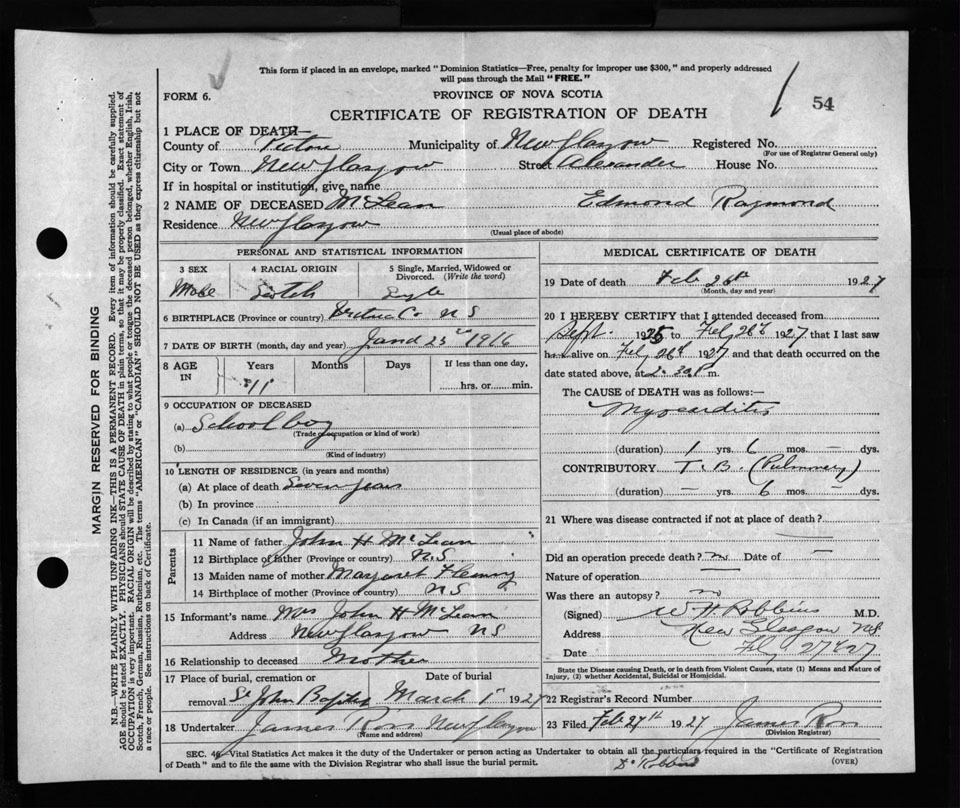 This form if placed in an envelope, marked "Dominion Statistics—Free, penalty for improper use $300," and properly addressed
will pass through the Mail "FREE."
FORM 6.
PROVINCE OF NOVA SCOTIA
54
CERTIFICATE OF REGISTRATION OF DEATH
1 PLACE OF DEATH—
County of Pictou Municipality of New Glasgow Registered No.
(For use of Registrar General only)
City or Town New Glasgow Street Alexander House No.
If in hospital or institution, give name
2 NAME OF DECEASED McLean Edmond Raymond
Residence New Glasgow
(Usual place of abode)
PERSONAL AND STATISTICAL INFORMATION
3 SEX
Male
4 RACIAL ORIGIN
Scotch
5 Single, Married, Widowed or
Divorced. (Write the word)
6 BIRTHPLACE (Province or country) Co NS
7 DATE OF BIRTH (month, day and year) 23 1916
8 AGE
IN
Years
11
Months
Days
If less than one day,
hrs. or min.
9 OCCUPATION OF DECEASED
(a) School boy
(Trade occupation or kind of work)
(b)
(Kind of industry)
10 LENGTH OF RESIDENCE (in years and months)
(a) At place of death Seven years
(b) In province
(c) In Canada (if an immigrant)
Parents
11 Name of father John H McLean
12 Birthplace of father (Province or country) N.S
13 Maiden name of mother Margaret Fleming
14 Birthplace of mother (Province of country) NS
15 Informant's name Mrs John H McLean
Address New Glasgow NS
16 Relationship to deceased Mother
17 Place of burial, cremation or
Date of burial
removal St John Baptist March 1st 1927
18 Undertaker James Ross New Glasgow
(Name and address)
MEDICAL CERTIFICATE OF DEATH
19 Date of death Feb 26th 1927
(Month, day and year)
20 I HEREBY CERTIFY that I attended deceased from
Sept. 1925 to Feb 26th 1927 that I last saw
h alive on Feb 26th 1927 and that death occurred on the
date stated above, at 2.30 P m.
The CAUSE OF DEATH was as follows:—
Myocarditis
(duration) 1 yrs. 6 mos. — dys.
CONTRIBUTORY T.B. (Pulmonary)
(duration) — yrs. 6 mos. — dys.
21 Where was disease contracted if not at place of death?
Did an operation precede death? no Date of —
Nature of operation
Was there an autopsy? no
(Signed) W H Robbins M.D.
Address New Glasgow N.S.
Date Feb 27th 27
State the Disease causing Death, or in death from Violent Causes, state (1) Means and Nature of
Injury, (2) whether Accidental, Suicidal or Homicidal.
22 Registrar's Record Number
23 Filed Feb. 27th 1927 James Ross
(Division Registrar)
SEC. 4 Vital Statistics Act makes it the duty of the Undertaker or person acting as Undertaker to obtain all the particulars required in the "Certificate of Registration
of Death" and to file the same with the Division Registrar who shall issue the burial permit.
(OVER)
Dr Robbins
MARGIN RESERVED FOR BINDING
N.B.—WRITE PLAINLY WITH UNFADING INK—THIS IS A PERMANENT RECORD. Every item of information should be carefully supplied.
AGE should be stated EXACTLY. PHYSICIANS should STATE CAUSE OF DEATH in plain terms, so that it may be properly classified. Exact statement of
OCCUPATION is very important. RACIAL ORIGIN will be described by stating to what people or tongue the deceased person belonged, whether English, Irish,
Scotch, French, German, Russian, Ruthenian, etc. The terms "AMERICAN" or "CANADIAN" SHOULD NOT BE USED as they express citizenship but not
a race or people. See instructions on back of Certificate.